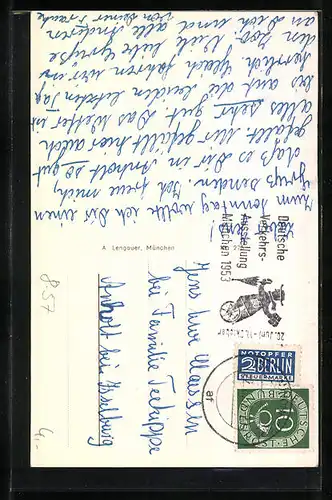 Lieber Jens!
Zum Sonntag wollt ich Dir einen
Gruß senden. Ich freue mich,
daß es Dir in Anholt so gut
gefällt. Mir gefällt hier auch
alles sehr gut. Das Wetter ist
bis auf die beiden letzten Tage
herrlich. Nach fahren wir in
den Zoo. Viele liebe Grüße
an Dich und alle Anderen
von Deiner
A. Lengauer, München
Deutsche
Verkehrs-
Ausstellung
München 1953
20. Juni - 11. Oktober
NOTOPFER
2 BERLIN
STEUERMARKE
10
DEUTSCHE BUNDESPOST
af
Jens Uwe Claassen
bei Familie Tekippe
Anholt bei Isselburg
8.57
4,-